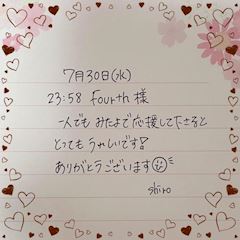 7月30日(水)
23:58 fourth 様
一人でも みたよで応援して下さると
とってもうれしいです!
ありがとうございます
shiro